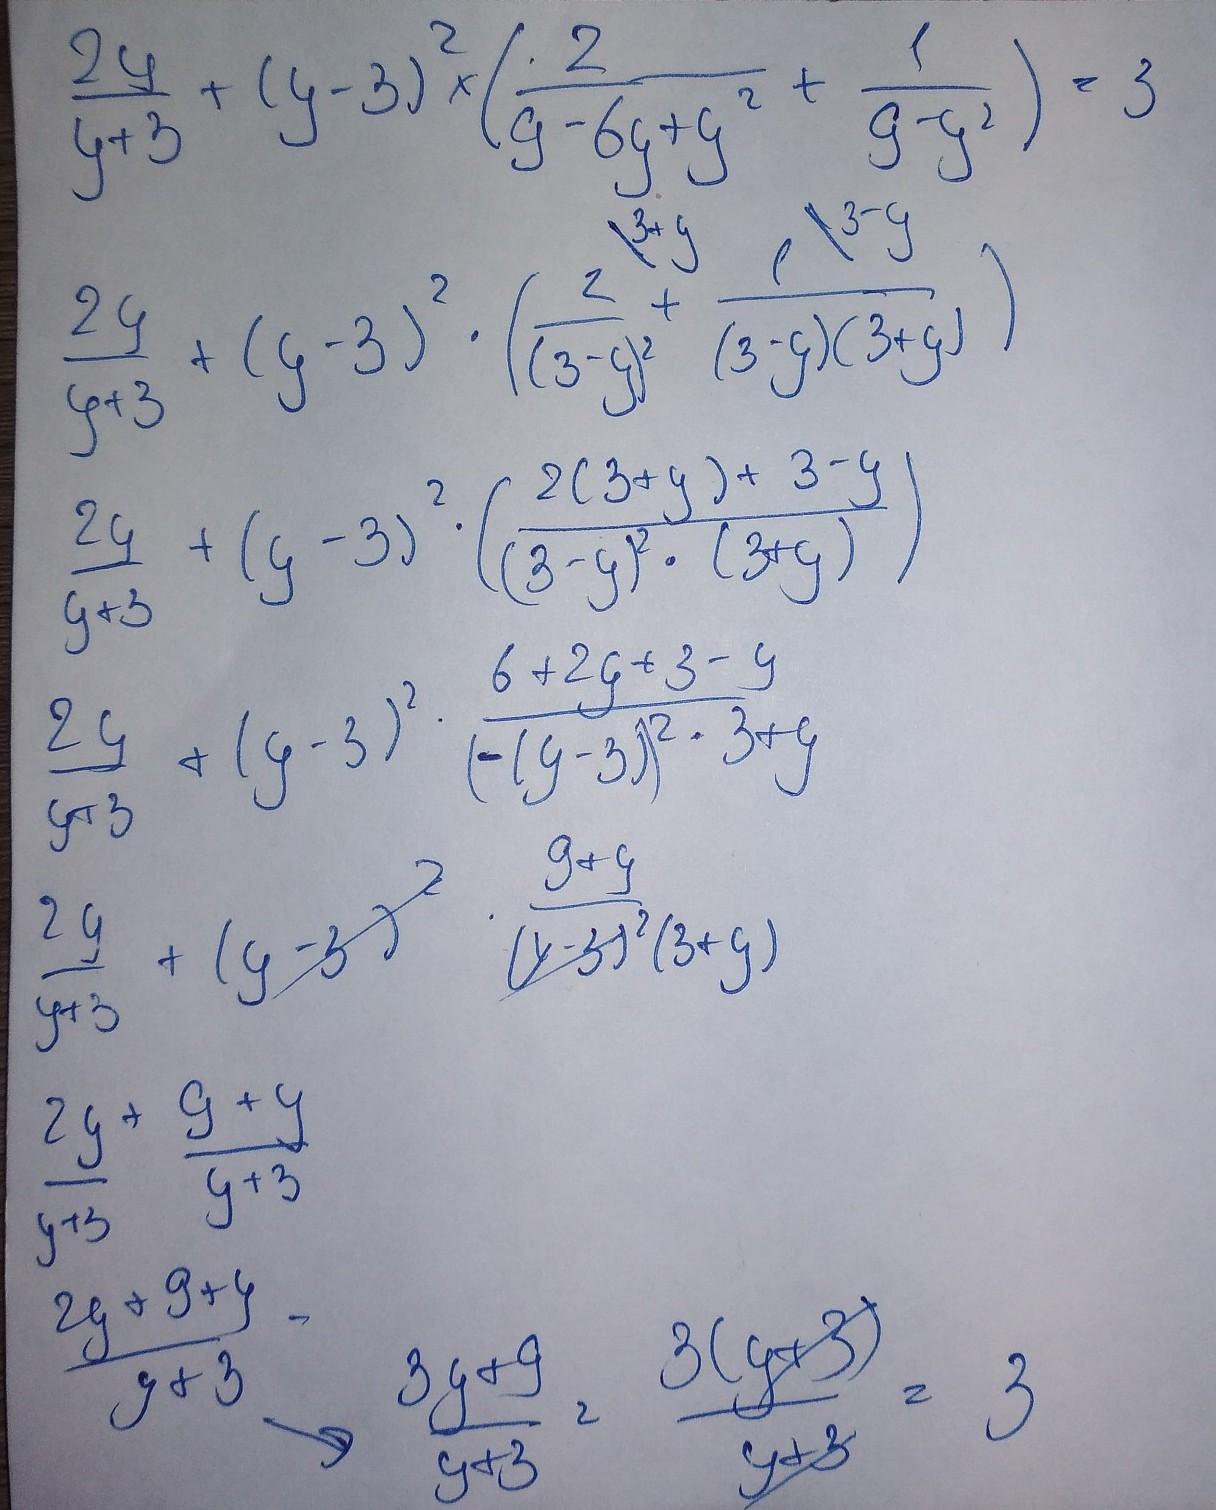 2y/(y+3) + (y-3)² × (2/(9-6y+y²) + 1/(9-y²)) = 3
2y/(y+3) + (y-3)² · (2/(3-y)² \3+y + 1/((3-y)(3+y)) \3-y)
2y/(y+3) + (y-3)² · ((2(3+y)+3-y)/((3-y)² · (3+y)))
2y/(y+3) + (y-3)² · (6+2y+3-y)/((-(y-3))² · 3+y)
2y/(y+3) + (y-3)² · (9+y)/((y-3)²(3+y))
2y/(y+3) + (9+y)/(y+3)
(2y+9+y)/(y+3) -
→ (3y+9)/(y+3) = 3(y+3)/(y+3) = 3